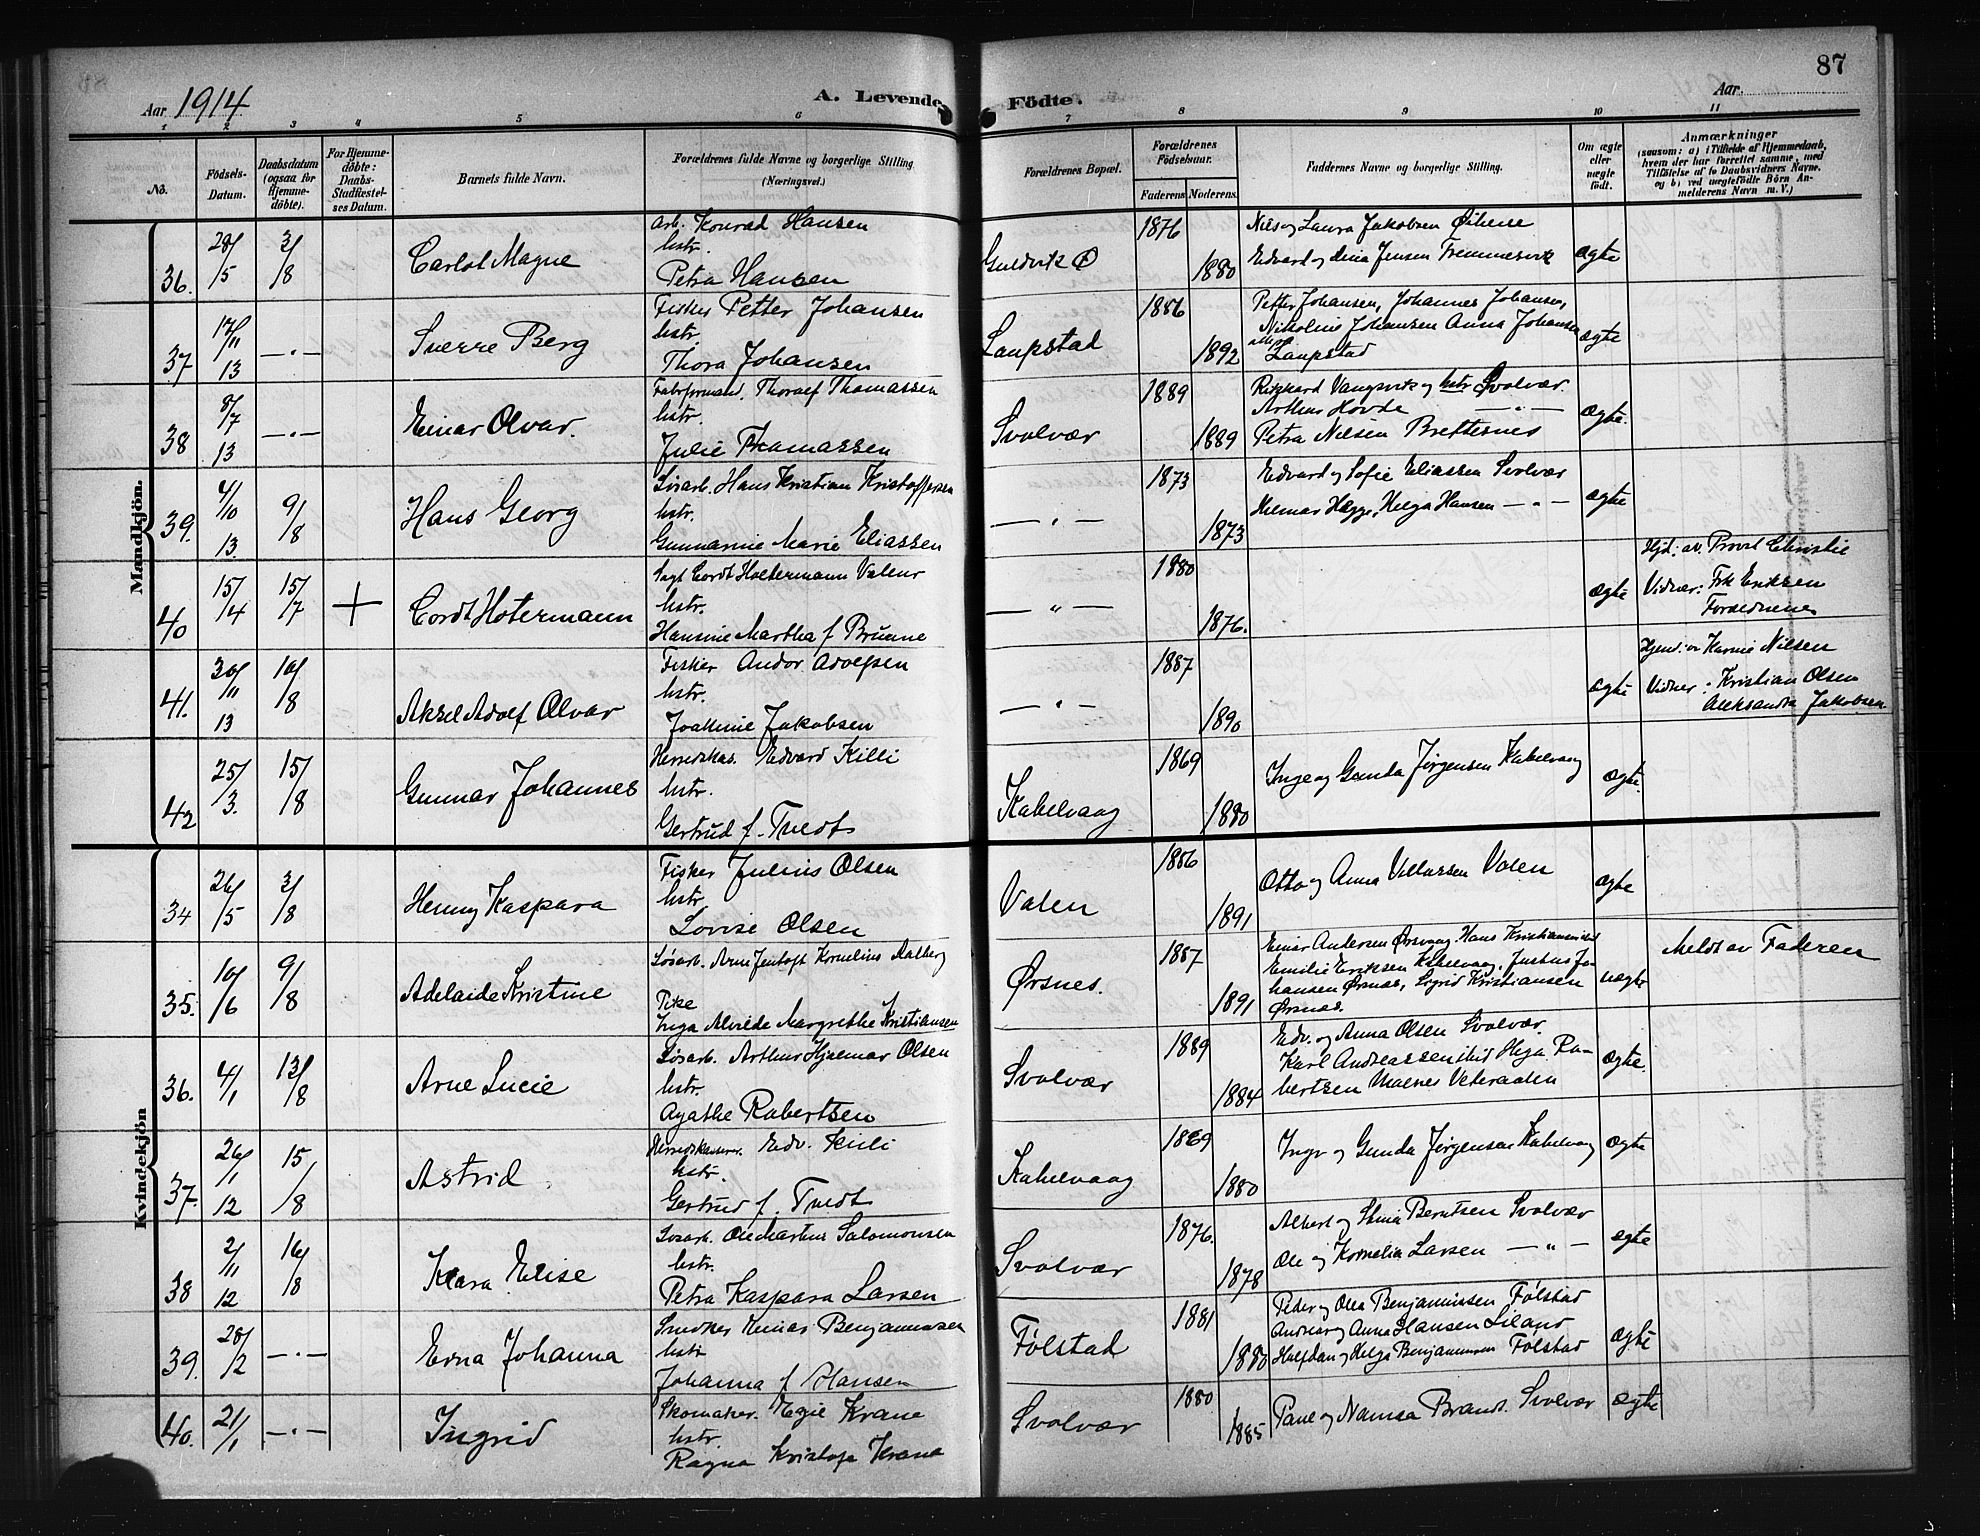 87
Aar 1914
A. Levende Födte.
Aar.
1 2 3 4 5 6 7 8 9 10 11
No.
Födsels-Datum.
Daabsdatum (ogsaa for Hjemme-döbte).
For Hjemme-döbte: Daabs-Stadfæstel-ses Datum.
Barnets fulde Navn.
Forældrenes fulde Navne og borgerlige Stilling. (Næringsvei.)
Forældrenes Bopæl.
Forældrenes Födselsaar.
Faderens Moderens.
Faddernes Navne og borgerlige Stilling.
Om ægte eller uægte födt.
Anmærkninger
(saasom: a) i Tilfælde af Hjemmedaab, hvem der har forrettet samme, med Tilföielse af to Daabsvidners Navne, og b) ved uægtefödte Börn An-melderens Navn m. V.)
Mandkjön.
36. 28/5 3/8 Carlot Magne
arb. Konrad Hansen
hstr.
Petra Hansen
1876 1880
Nils og Laura Jakobsen
ægte
37 17/11 13 —"— Sverre Berg
Fisker Petter Johansen
hstr.
Thora Johansen
Laupstad 1886 1892
Petter Johansen, Johannes Johansen,
Nikoline Johansen Anna Johansen
Laupstad
ægte
38 8/7 13 —"— Einar Olvar.
Thoralf Thomassen
hstr.
Julie Thomassen
Svolvær 1889 1889
Rikhard Vangsvik og hstr Svolvær.
Arthur Hovde —"—
Petra Nilsen Brettesnes
ægte.
39. 4/10 13. 9/8 Hans Georg
Løsarb. Hans Kristian Kristoffersen
hstr.
Gunnarine Marie Eliassen
—"— 1873 1873
Edvard og Sofie Eliassen Svolvær
Hilmar Hagge, Helga Hansen —"—
ægte
40 15/4 15/7 + Cordt Hotermann
Sagf. Cordt Holtermann Valeur
hstr.
Hansine Martha f. Brunne
—"— 1880 1876.
ægte
Hjd. av. Provst Christie
Vidner: Frk Eriksen
Forældrene
41. 30/11 13 10/8 Aksel Adolf Olvar
Fisker Andor Adolfsen
hstr.
Joakime Jakobsen
—"— 1887 1890
ægte
Hjemd. av Karine Nilsen
Vidner: Kristian Olsen
Aleksandra Jakobsen
42 25/3. 15/8 Gunnar Johannes
Herredskas. Edvard Killi
hstr.
Gertrud f. Tvedt
Kabelvaag 1869 1880
Inge og Gunda Jørgensen Kabelvaag
ægte.
Kvindekjön
34 26/5 3/8 Henny Kaspara
Fisker Julius Olsen
hstr
Lovise Olsen
Valen 1886 1891
Otto og Anna Villassen Valen
ægte
35. 10/6 9/8 Adelaide Kristine
Løsarb. Arne Jentoft Kornelius Aalberg
Pike
Inga Alvilde Margrethe Kristiansen
Ørsnes. 1887 1891
Einar Andersen Ørsvaag. Hans Kristiansen ibid
Emilie Eriksen Kabelvaag, Justus Jo-
hansen Ørsnes, Sigrid Kristiansen
Ørsnes.
uægte
Meldt av Faderen
36. 4/1 13/8 Arne Lucie
Løsarb. Arthur Hjalmar Olsen
hstr.
Agathe Robertsen
Svolvær 1889 1884
Edv. og Anna Olsen Svolvær.
Karl Andreassen ibid Helga Ro-
bertsen Malnes Vesteraalen
ægte.
37. 26/1 12 15/8 Astrid
Herredskasserer. Edv. Killi
hstr.
Gertrud f. Tvedt
Kabelvaag 1869 1880
Inge og Gunda Jørgensen Kabelvaag
ægte
38 2/11 12 16/8 Klara Elise
Løsarb. Ole Martus Salomonsen
hstr.
Petra Kaspara Larsen
Svolvær 1876. 1878
Albert og Stina Berntsen Svolvær
Ole og Kornelia Larsen —"—
ægte
39. 28/2 —"— Edna Johanna
Snedker Einar Benjaminsen
hstr
Johanna f. Hansen
Følstad 1881 1880
Peder og Olea Benjaminsen Følstad
Andreas og Anna Hansen Liland
Halfdan og Helga Benjaminsen Følstad
ægte
40. 21/1 —"— Ingrid
Skomaker. Krane
hstr.
Ragna Kristofa Krane
Svolvær 1880 1885
Paul og Brandt. Svolvær
ægte